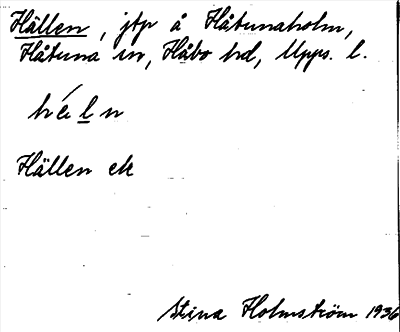 Hällen, jtp å Håtunaholm,
Håtuna sn, Håbo hd, Upps. l.
hɛ́ln
Hällen ek
Stina Holmström 1936